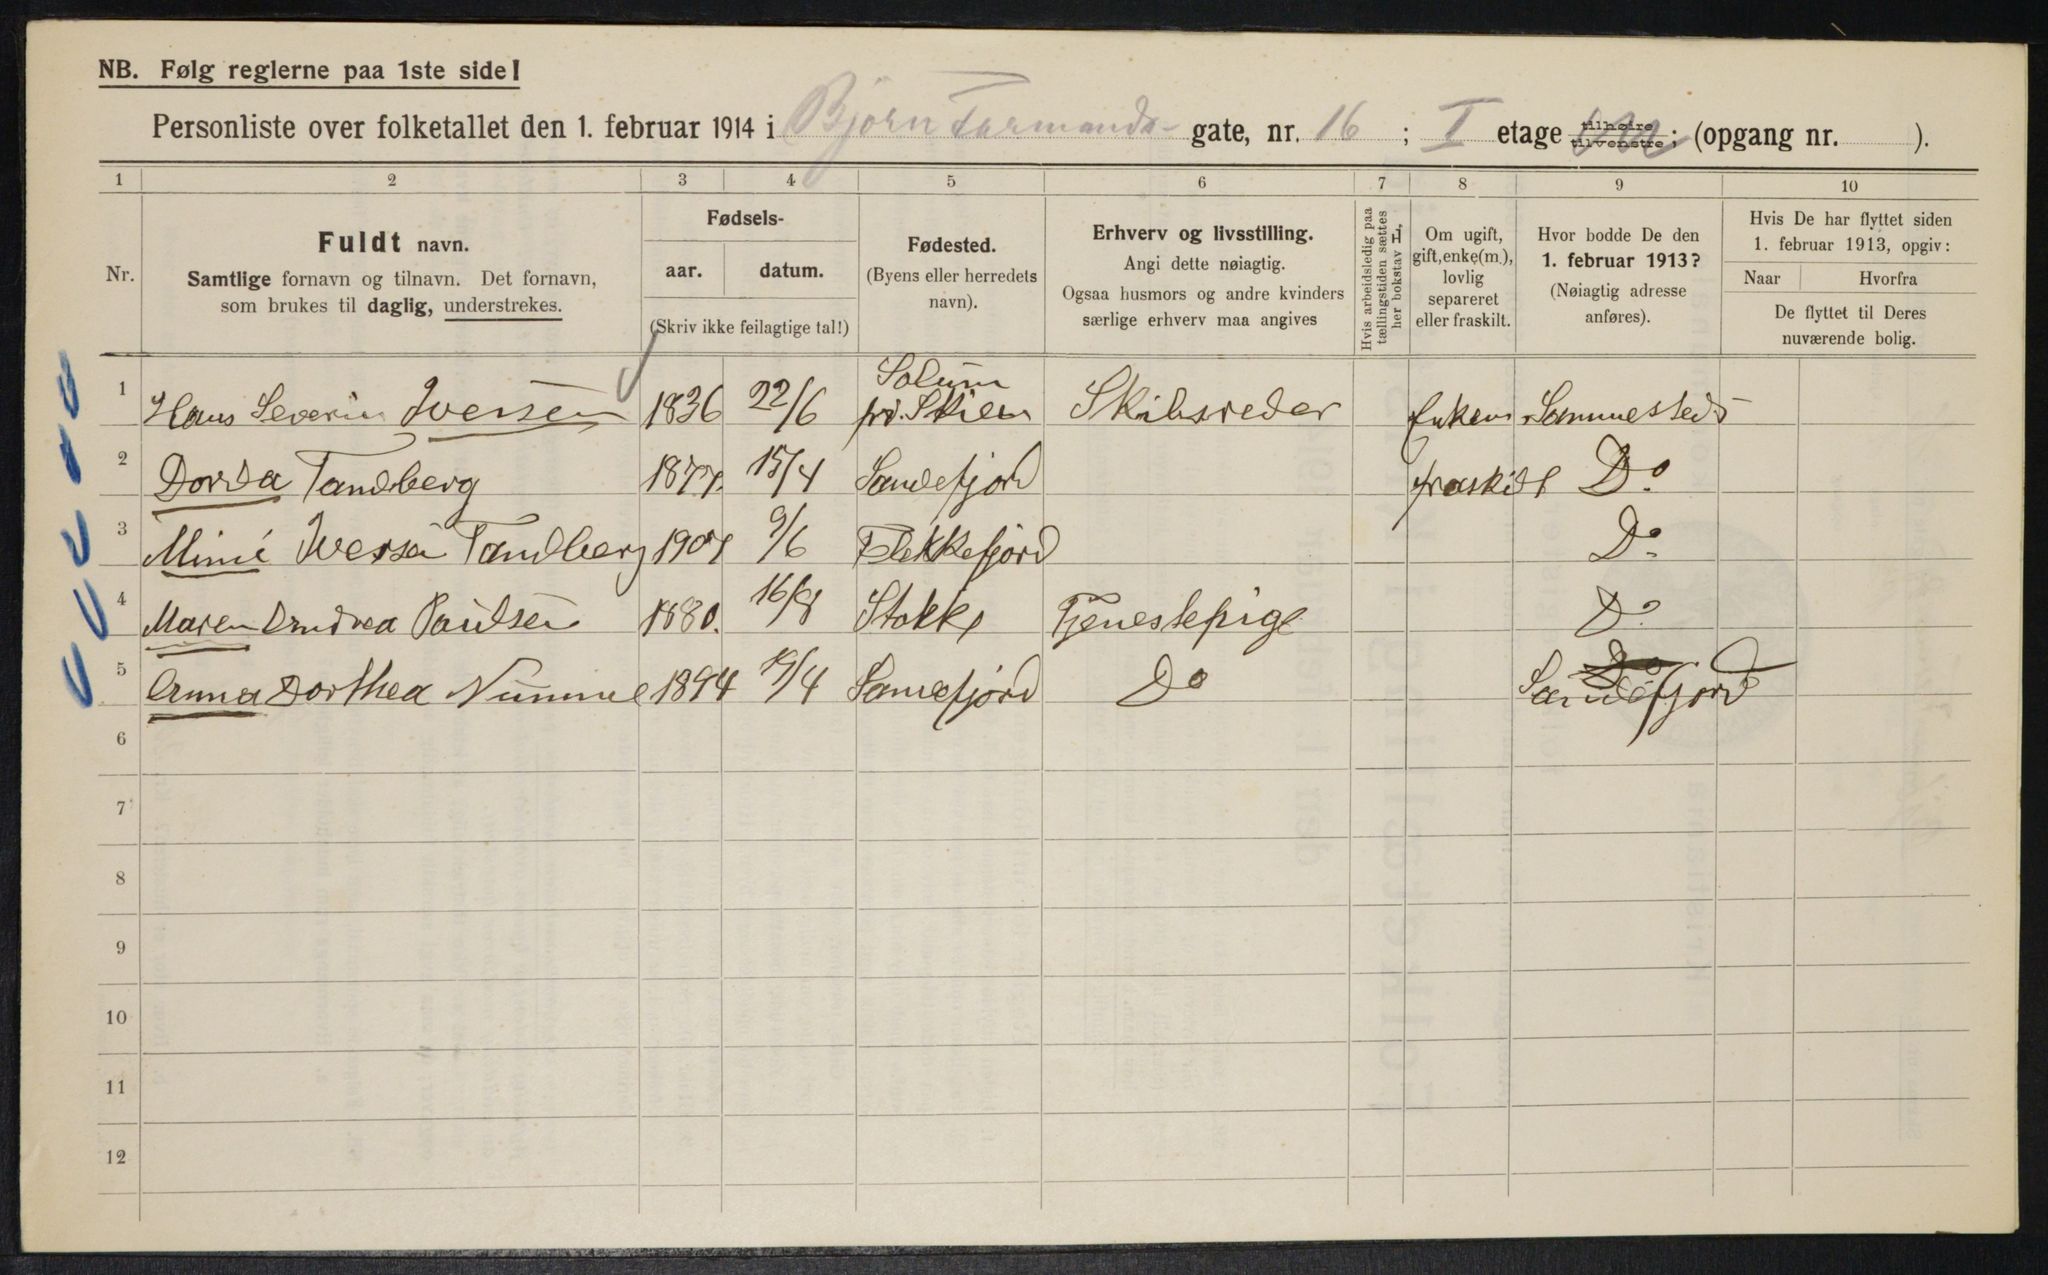 NB. Følg reglerne paa 1ste side!
Personliste over folketallet den 1. februar 1914 i Bjørn Farmands- gate, nr. 16 ; I etage tilhøire tilvenstre; (opgang nr. ).
1 2 3 4 5 6 7 8 9 10
Nr.
Fuldt navn.
Samtlige fornavn og tilnavn. Det fornavn,
som brukes til daglig, understrekes.
Fødsels-
aar. datum.
(Skriv ikke feilagtige tal!)
Fødested.
(Byens eller herredets
navn).
Erhverv og livsstilling.
Angi dette nøiagtig.
Ogsaa husmors og andre kvinders
særlige erhverv maa angives
Hvis arbeidsledig paa
tællingstiden sættes
her bokstav L.
Om ugift,
gift, enke(m.),
lovlig
separeret
eller fraskilt.
Hvor bodde De den
1. februar 1913?
(Nøiagtig adresse
anføres).
Hvis De har flyttet siden
1. februar 1913, opgiv:
Naar Hvorfra
De flyttet til Deres
nuværende bolig.
1 Hans Severin Iversen 1836 22/6 Solum pr. Skien Skibsreder Enkem Sammesteds
2 Dorda Tandberg 15/4 Sandefjord fraskilt Do
3 Mimi Iversen Tandberg 9/6 Flekkefjord Do
4 Maren Andrea Paulsen 1880. 16/8 Stokke Tjenestepige Do
5 Anna Dorthea Nummel 1894 19/4 Sandefjord Do Do Sandefjord
6
7
8
9
10
11
12